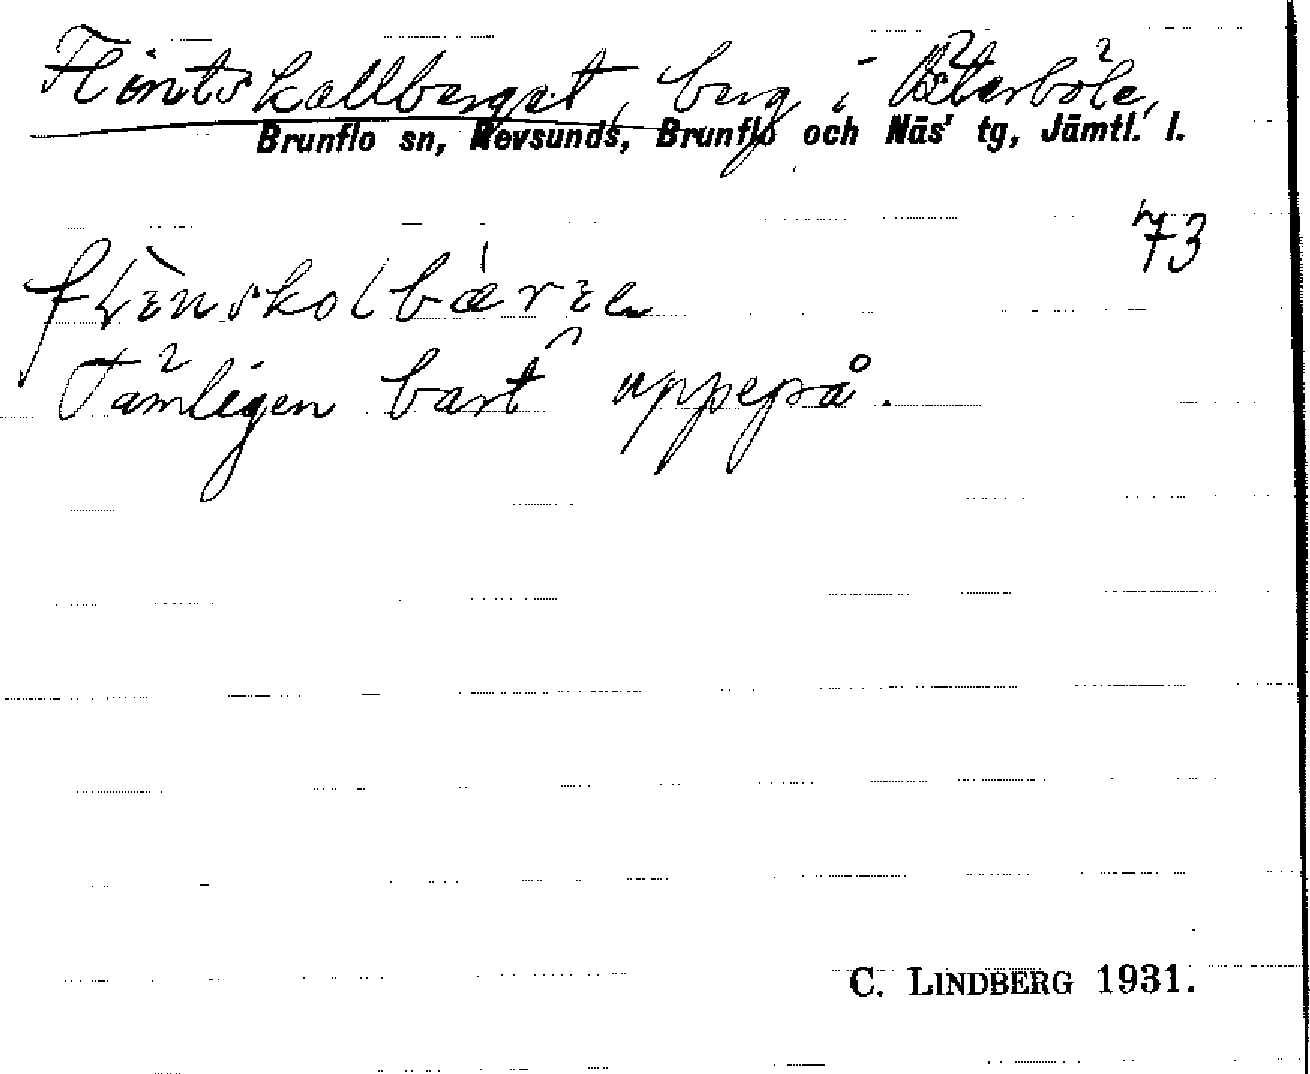 Flintskallberget, berg i Österböle,
Brunflo sn, Revsunds, Brunflo och Näs' tg, Jämtl. l.
73
Tämligen bart uppepå.
C. LINDBERG 1931.